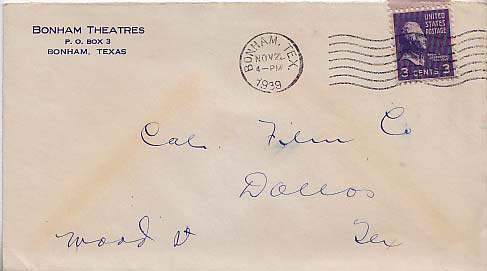 BONHAM THEATRES
P. O. BOX 3
BONHAM, TEXAS
BONHAM, TEX.
NOV 22
4-PM
1939
UNITED
STATES
POSTAGE
3 CENTS 3
Cal. Film Co
Dallas
Wood St
Tex